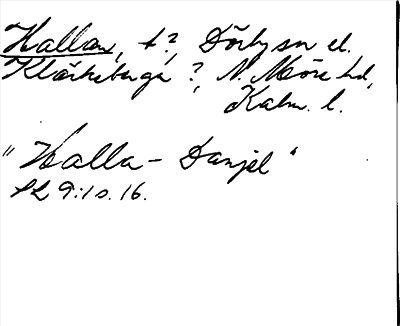 Hallan, t?, Dörbysn el.
Kläckeberga?, N. Möre hd,
Kalm. l.
"Halla-Danjel"
SL 9:1 s. 16.